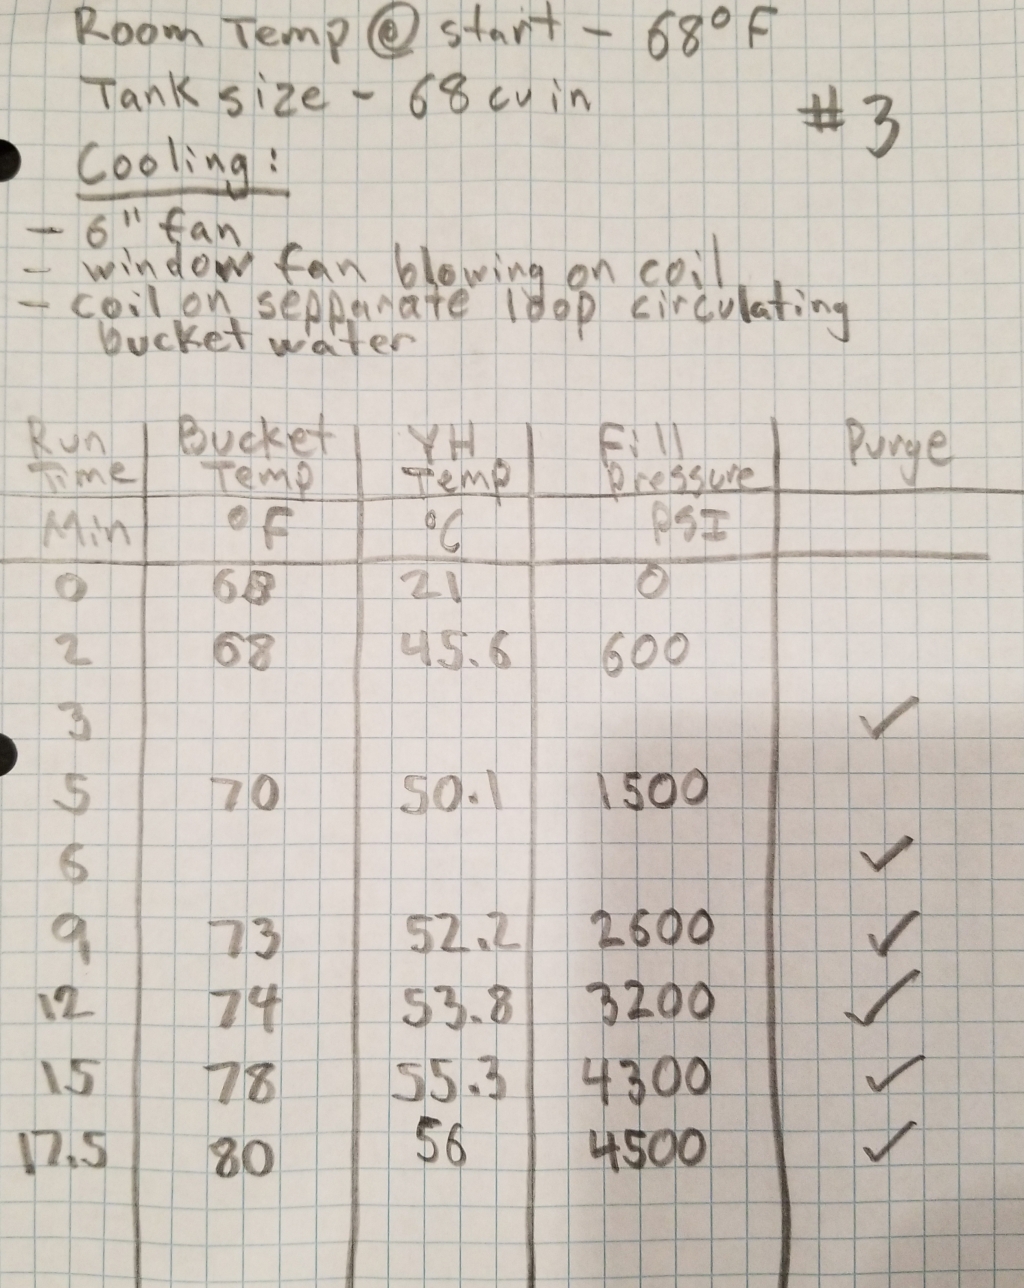 Room Temp @ start - 68°F
Tank size - 68 cu in
#3
Cooling:
- 6" fan
- window fan blowing on coil
- coil on sepparate loop circulating
bucket water
Run Time | Bucket Temp | YH Temp | Fill Pressure | Purge
Min | °F | °C | PSI
0 | 68 | 21 | 0
2 | 68 | 45.6 | 600
3 | ✓
5 | 70 | 50.1 | 1500
6 | ✓
9 | 73 | 52.2 | 2600 | ✓
12 | 74 | 53.8 | 3200 | ✓
15 | 78 | 55.3 | 4300 | ✓
17.5 | 80 | 56 | 4500 | ✓